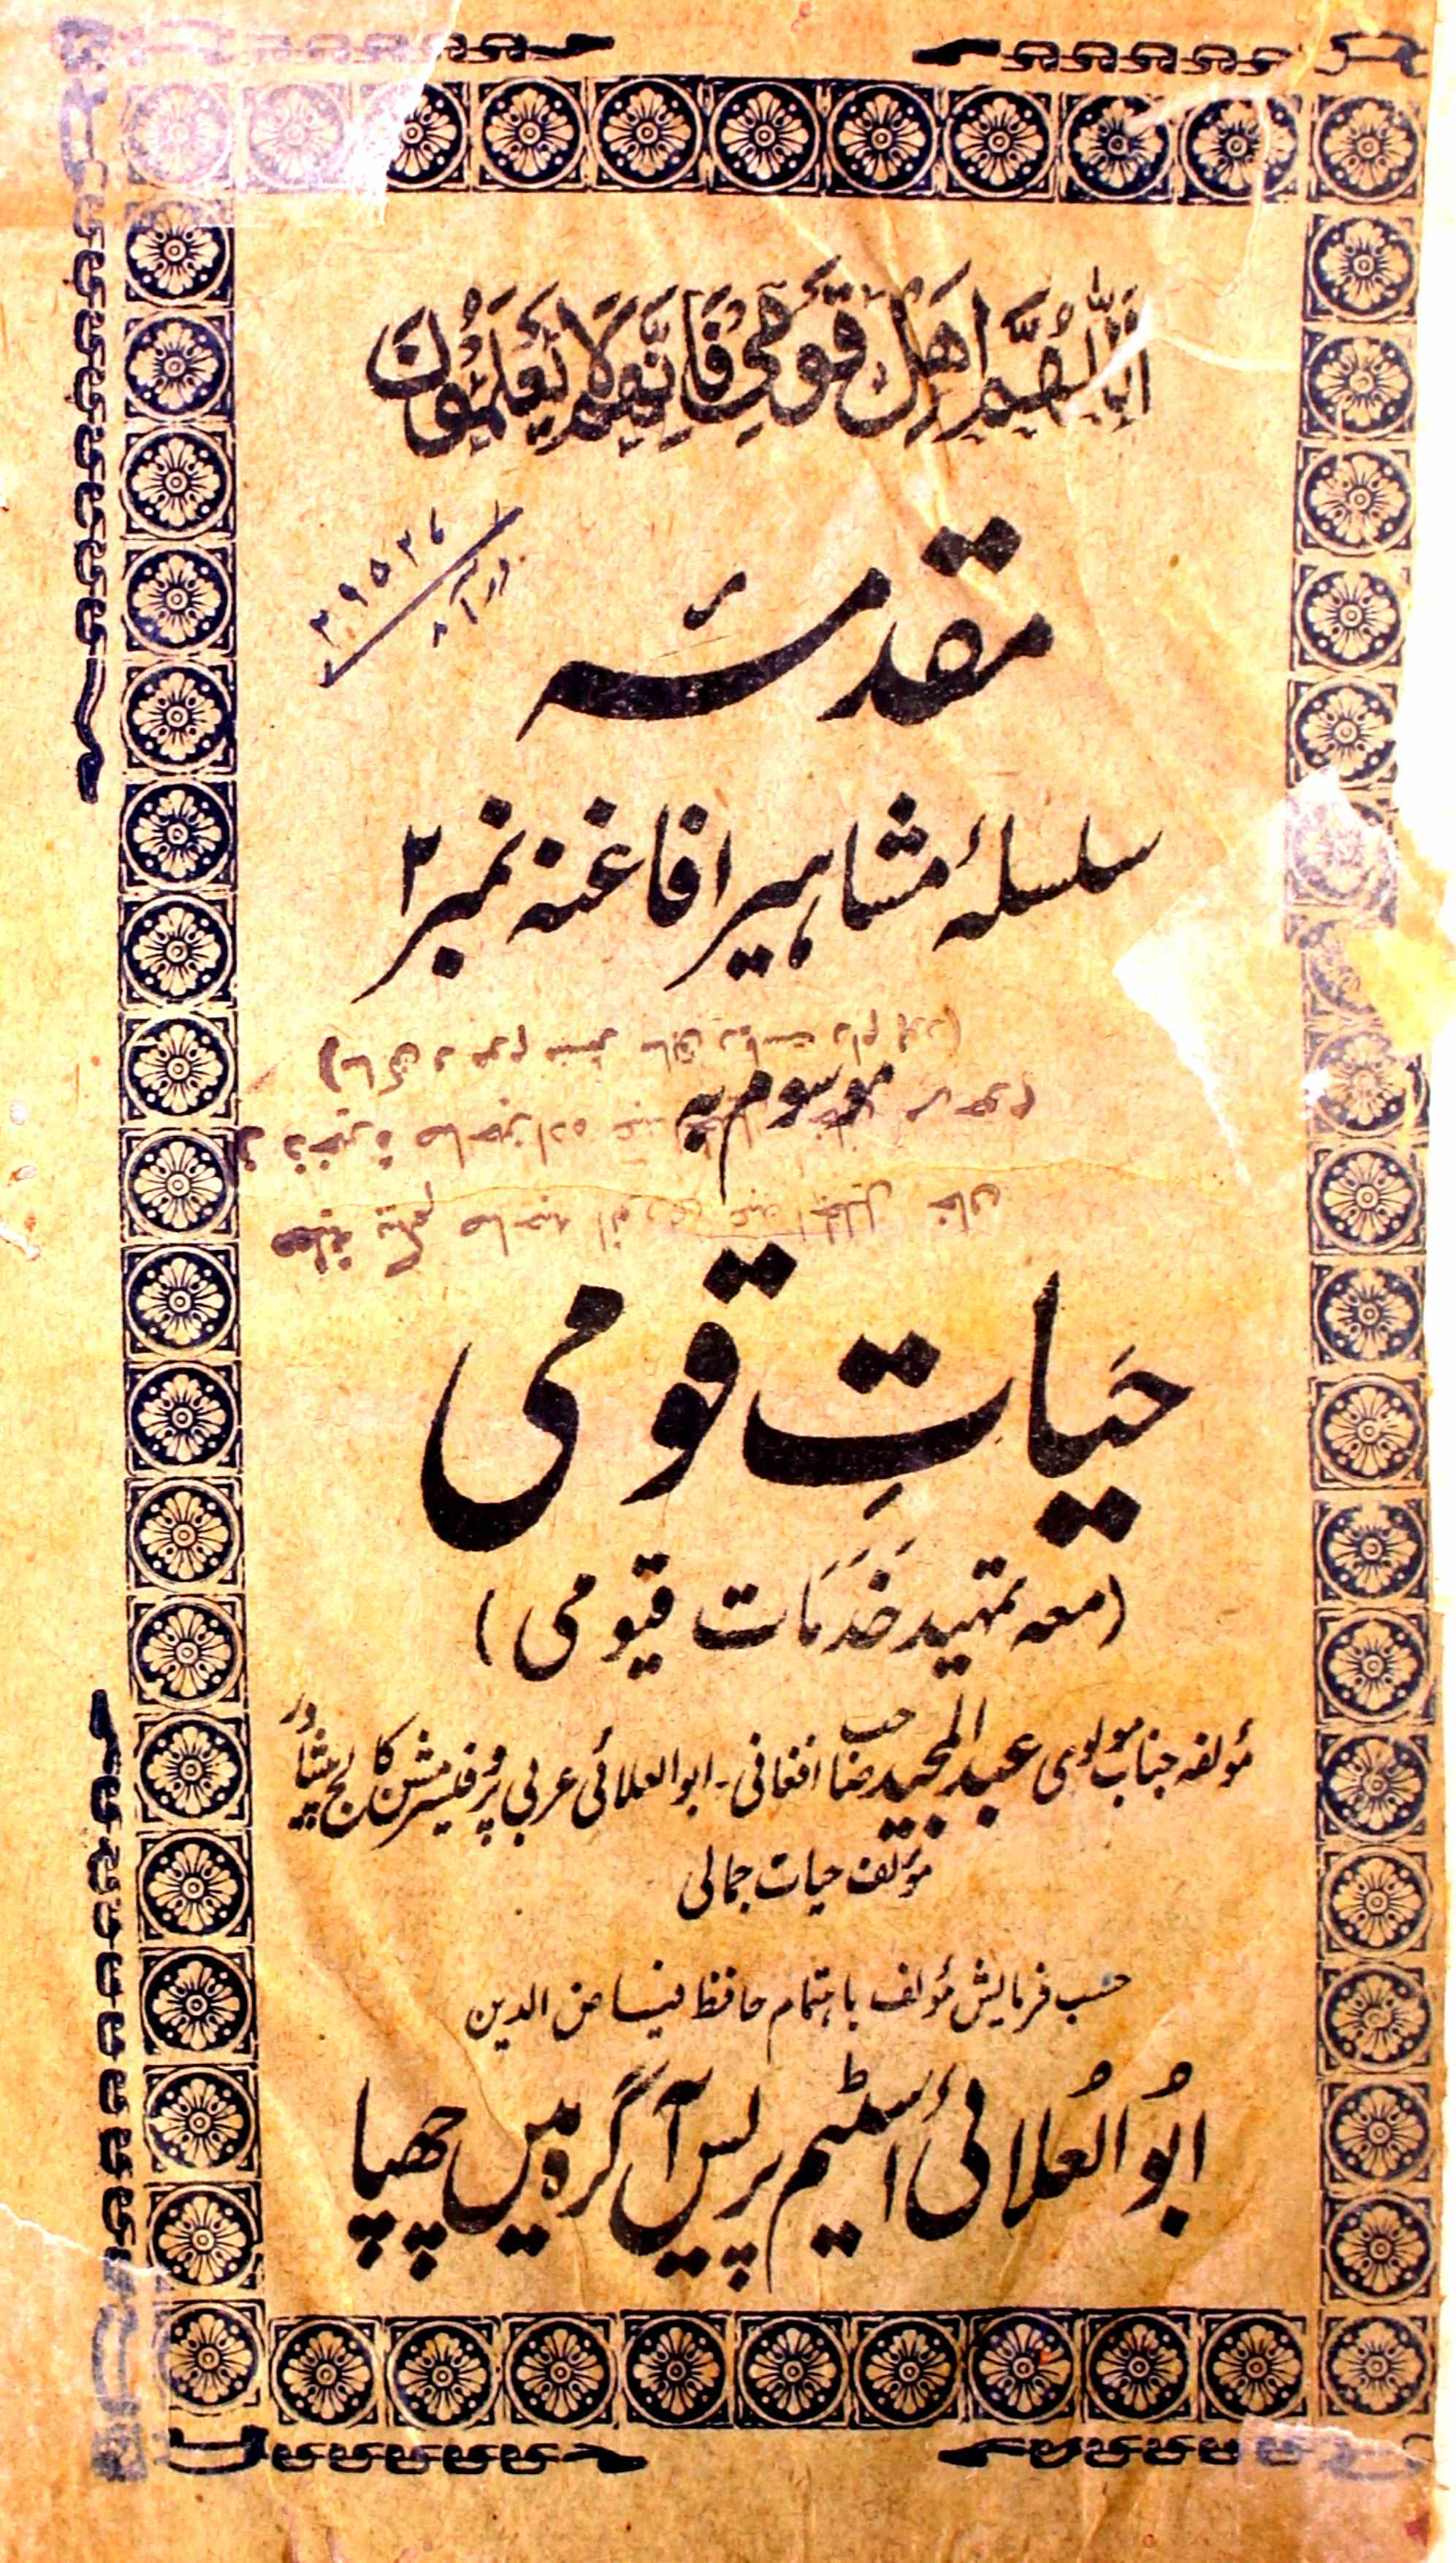 اَللّٰهُمَّ اهْدِ قَوْمِیْ فَاِنَّهُمْ لَا یَعْلَمُوْنَ
مقدمۂ
سلسلۂ مشاہیر افاغنہ نمبر ۲
موسوم بہ
حیاتِ قومی
(معہ تمہید خدمات قیومی)
مؤلفہ جناب مولوی عبدالمجید صاحب افغانی۔ ابوالعلائی عربی پروفیسر مشن کالج پشاور
مؤلف حیات جمالی
حسب فرمایش مؤلف باہتمام حافظ فیاض الدین
ابُوالعُلائی اسٹیم پریس آگرہ میں چھپا